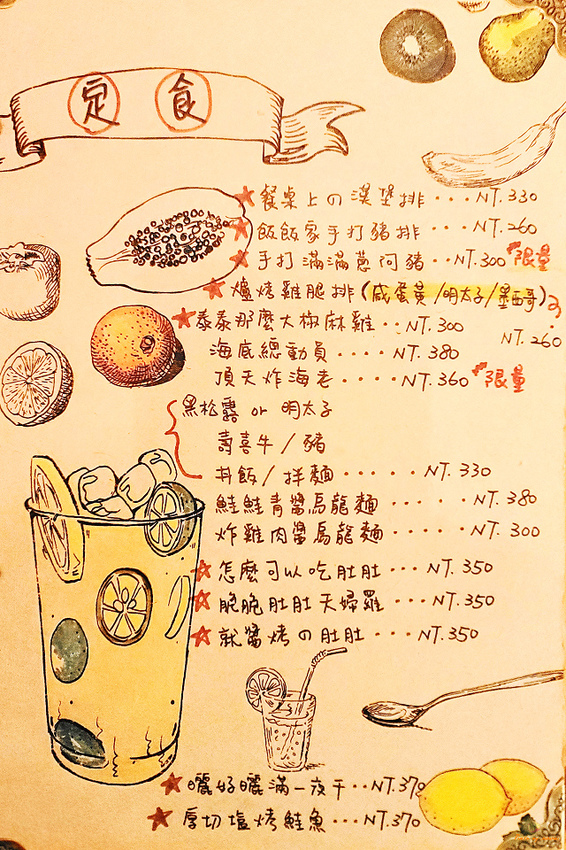 定食
餐桌上の漢堡排···NT.330
飯飯家手打豬排···NT.260
手打滿滿蔥阿豬··NT.300 限量
爐烤雞腿排(咸蛋黃/明太子/墨西哥)
NT.260
泰泰那麼大椒麻雞··NT.300
海底總動員····NT.380
頂天炸海老····NT.360 限量
黑松露 or 明太子
壽喜牛/豬
丼飯/拌麵·····NT.330
鮭鮭青醬烏龍麵·····NT.380
炸雞肉醬烏龍麵·····NT.300
怎麼可以吃肚肚···NT.350
脆脆肚肚天婦羅···NT.350
就醬烤の肚肚···NT.350
曬好曬滿一夜干··NT.370
厚切塩烤鮭魚··NT.370